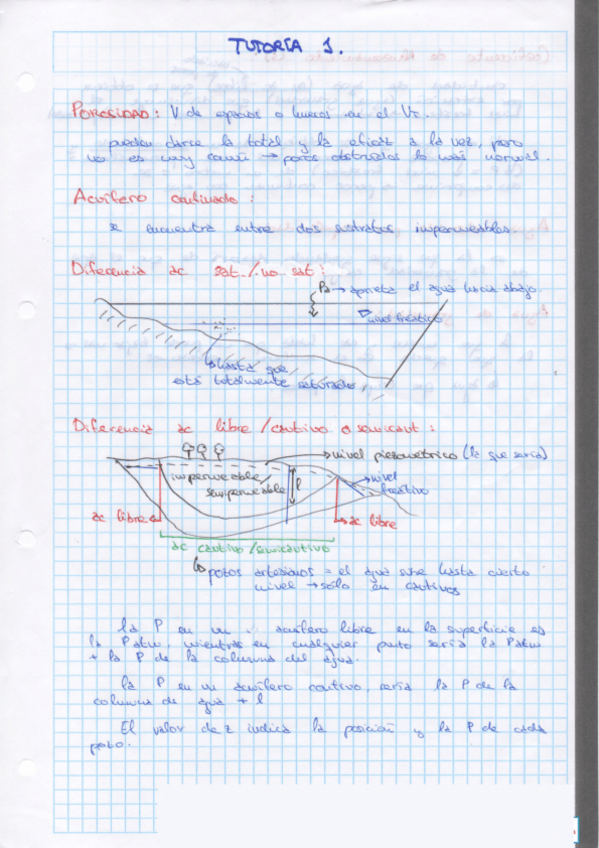 TUTORÍA 1.
POROSIDAD: V de espacios o huecos en el VT.
pueden darse la total y la eficaz a la vez, pero
no es muy común → poros obturados lo más normal.
Acuífero confinado:
se encuentra entre dos sustratos impermeables.
Diferencia ac sat./no sat:
Pa → aprieta el agua hacia abajo.
nivel freático
hasta que
está totalmente saturado
Diferencia ac libre/cautivo o semicaut:
nivel piezométrico (lo que sería)
impermeable/
semipermeable
l
nivel
freático
ac libre
ac libre
ac cautivo/semicautivo
pozos artesianos = el agua sube hasta cierto
nivel → sólo en cautivos
La P en un acuífero libre en la superficie es
la Patm, mientras en cualquier punto sería la Patm
+ la P de la columna del agua.
La P en un acuífero cautivo, sería la P de la
columna de agua + l
El valor de z indica la posición y la P de cada
pozo.